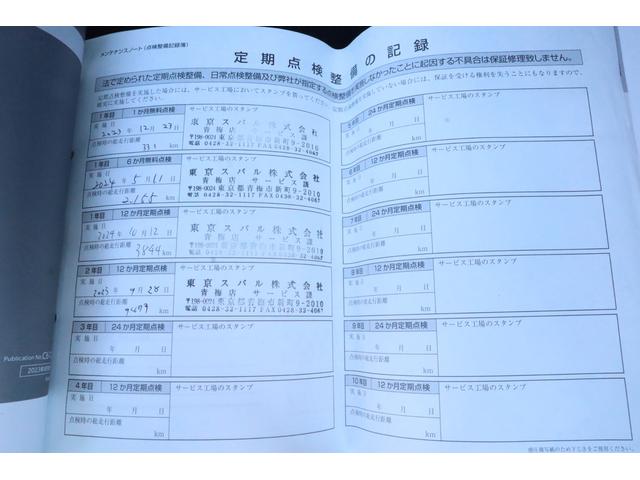 メンテナンスノート(点検整備記録簿)
定期点検整備の記録
法で定められた定期点検整備、日常点検整備及び弊社が指定する点検整備を実施しなかったことに起因する不具合は保証修理致しません。
1年目 1か月無料点検 サービス工場のスタンプ
実施日
2023年12月23日
点検時の総走行距離
331 km
東京スバル株式会社
青梅店 サービス課
〒198-0024 東京都青梅市新町9-2010
電話 0428-32-1117 FAX0428-32-4067
1年目 6か月無料点検 サービス工場のスタンプ
実施日
2024年5月11日
点検時の総走行距離
2,155 km
東京スバル株式会社
青梅店 サービス課
〒198-0024 東京都青梅市新町9-2010
電話 0428-32-1117 FAX0428-32-4067
1年目 12か月定期点検 サービス工場のスタンプ
実施日
2024年10月12日
点検時の総走行距離
3844 km
東京スバル株式会社
青梅店 サービス課
〒198-0024 東京都青梅市新町9-2010
電話 0428-32-1117 FAX0428-32-4067
2年目 12か月定期点検 サービス工場のスタンプ
実施日
2025年9月28日
点検時の総走行距離
km
東京スバル株式会社
青梅店 サービス課
〒198-0024 東京都青梅市新町9-2010
電話 0428-32-1117 FAX0428-32-4067
3年目 24か月定期点検 サービス工場のスタンプ
実施日
年 月 日
点検時の総走行距離
km
4年目 12か月定期点検 サービス工場のスタンプ
実施日
年 月 日
点検時の総走行距離
km
24か月定期点検 サービス工場のスタンプ
年 月 日
km
12か月定期点検 サービス工場のスタンプ
年 月 日
km
7年目 24か月定期点検 サービス工場のスタンプ
年 月 日
km
8年目 12か月定期点検 サービス工場のスタンプ
年 月 日
km
9年目 24か月定期点検 サービス工場のスタンプ
実施日
年 月 日
点検時の総走行距離
km
10年目 12か月定期点検 サービス工場のスタンプ
実施日
年 月 日
点検時の総走行距離
km
Publication No.